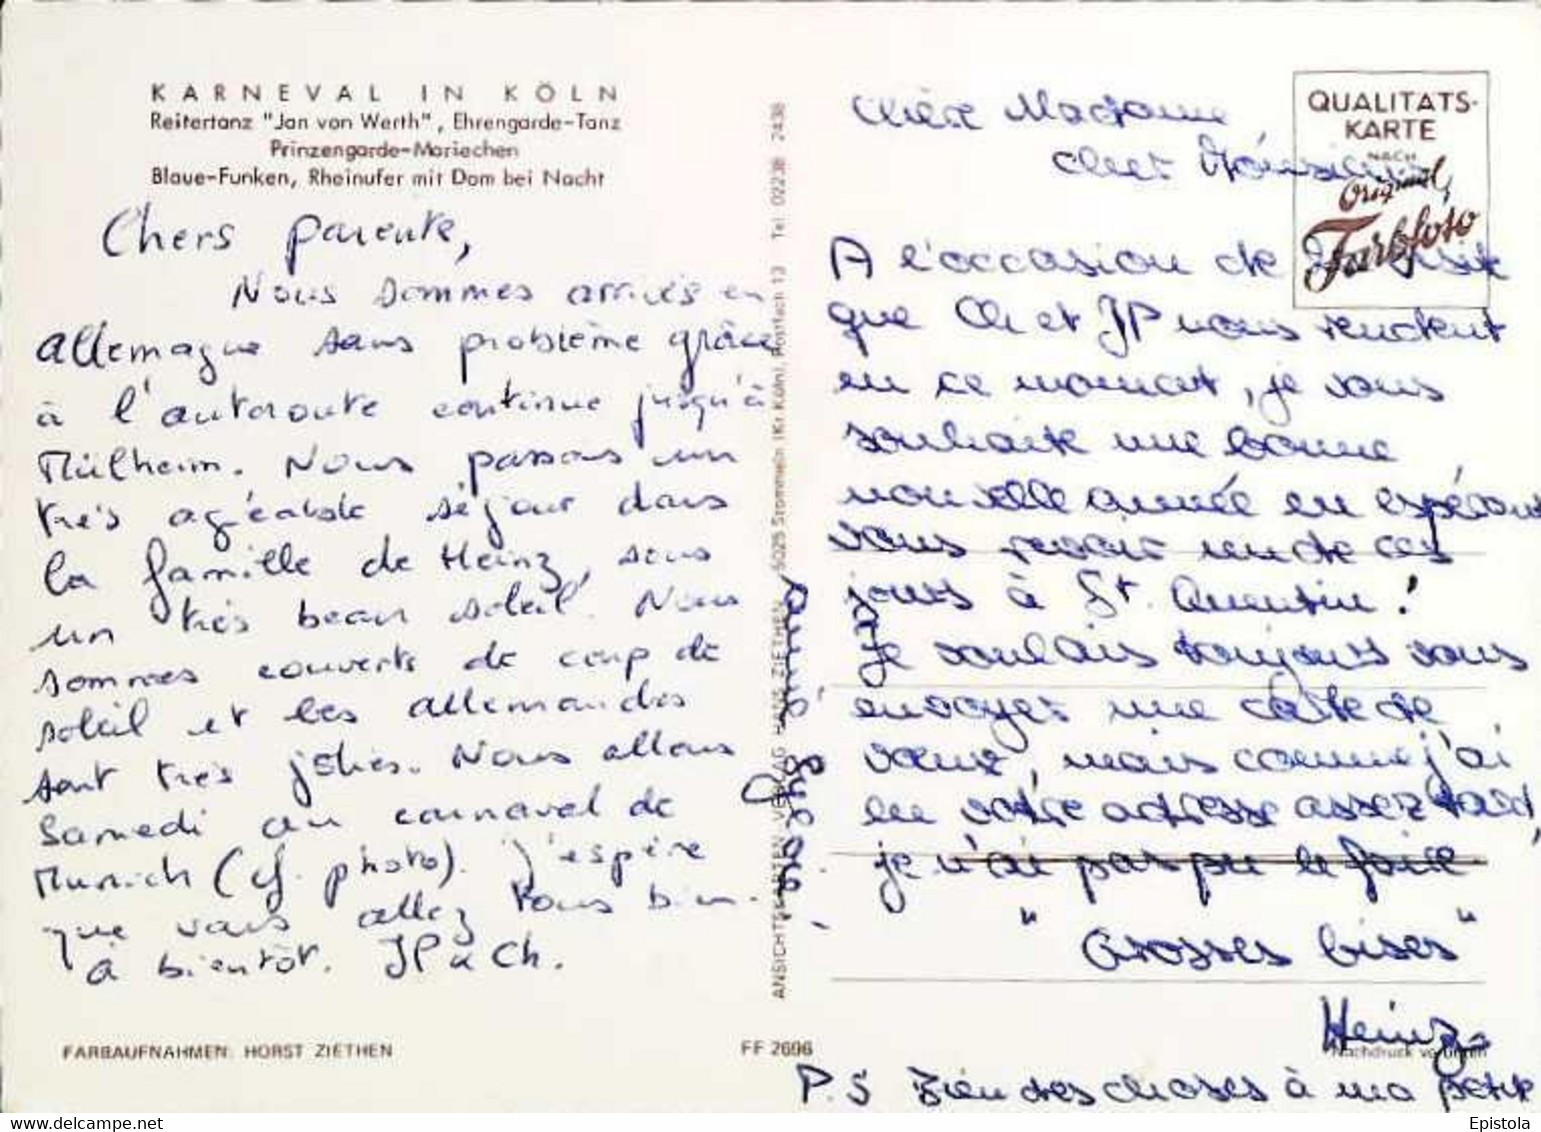 KARNEVAL IN KÖLN
Reitertanz "Jan von Werth", Ehrengarde-Tanz
Prinzengarde-Mariechen
Blaue-Funken, Rheinufer mit Dom bei Nacht
Chers parents,
Nous sommes arrivés en
allemagne sans problème grâce
à l'autoroute continue jusqu'à
Mülheim. Nous passons un
très agréable séjour dans
la famille de Heinz, sous
un très beau soleil. Nous
sommes couverts de coup de
soleil et les allemandes
sont très jolies. Nous allons
samedi au carnaval de
Munich (cf. photo). J'espère
que vous allez tous bien.
à bientôt. JP & Ch.
FARBAUFNAHMEN: HORST ZIETHEN
FF 2696
ANSICHTSKARTEN VERLAG HANS ZIETHEN 5025 Stommeln (Kr. Köln), Postfach 13 Tel. 02238 2438
QUALITATS-
KARTE
NACH
Original
Farbfoto
Chère Madame,
cher Monsieur,
A l'occasion de la visite
que Ch et JP nous rendent
en ce moment, je vous
souhaite une bonne
nouvelle année en espérant
vous revoir un de ces
jours à St. Quentin!
Je voulais toujours vous
envoyer une carte de
vœux, mais comme j'ai
eu votre adresse assez tard,
je n'ai pas pu le faire
"Grosses bises"
Heinz
Nachdruck verboten
P.S Bien des choses à ma petite
Epistola